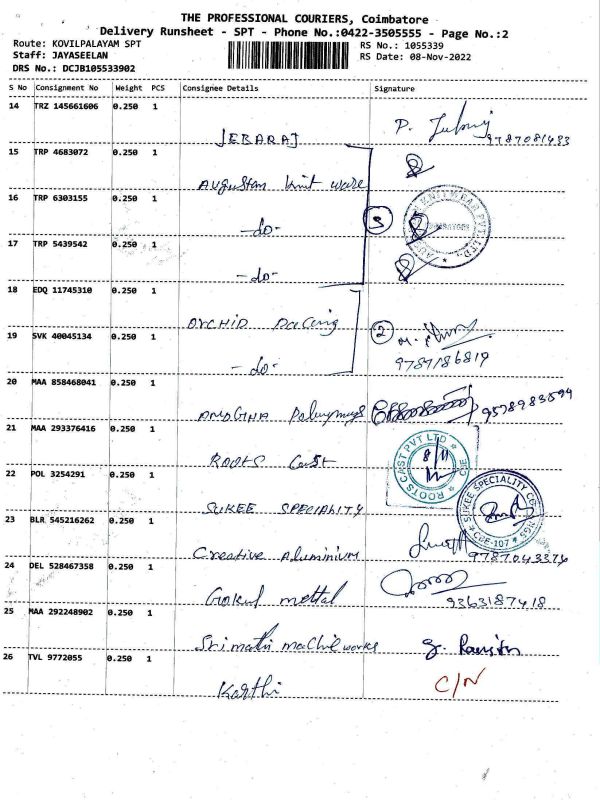 THE PROFESSIONAL COURIERS, Coimbatore
Delivery Runsheet - SPT - Phone No.:0422-3505555 - Page No.:2
Route: KOVILPALAYAM SPT
Staff: JAYASEELAN
DRS No.: DCJB105533902
RS No.: 1055339
RS Date: 08-Nov-2022
S No Consignment No Weight PCS Consignee Details Signature
14 TRZ 145661606 0.250 1
JEBARAJ 9787081483
15 TRP 4683072 0.250 1
Augustan knit ware
16 TRP 6303155 0.250 1
-do- 3
17 TRP 5439542 0.250 1
-do-
18 EDQ 11745310 0.250 1
ORCHID 2
19 SVK 40045134 0.250 1
-do- 9787186819
20 MAA 858468041 0.250 1
9578983594
21 MAA 293376416 0.250 1
ROOTS Cast
ROOTS CAST PVT LTD CBE
8/11
22 POL 3254291 0.250 1
SUKEE SPECIALITY
SUKEE SPECIALITY
CBE-107
23 BLR 545216262 0.250 1
Creative Aluminium 9787043374
24 DEL 528467358 0.250 1
Gokul mettal 9363187418
25 MAA 292248902 0.250 1
Srimathi works
26 TVL 9772055 0.250 1
Karthi C/N